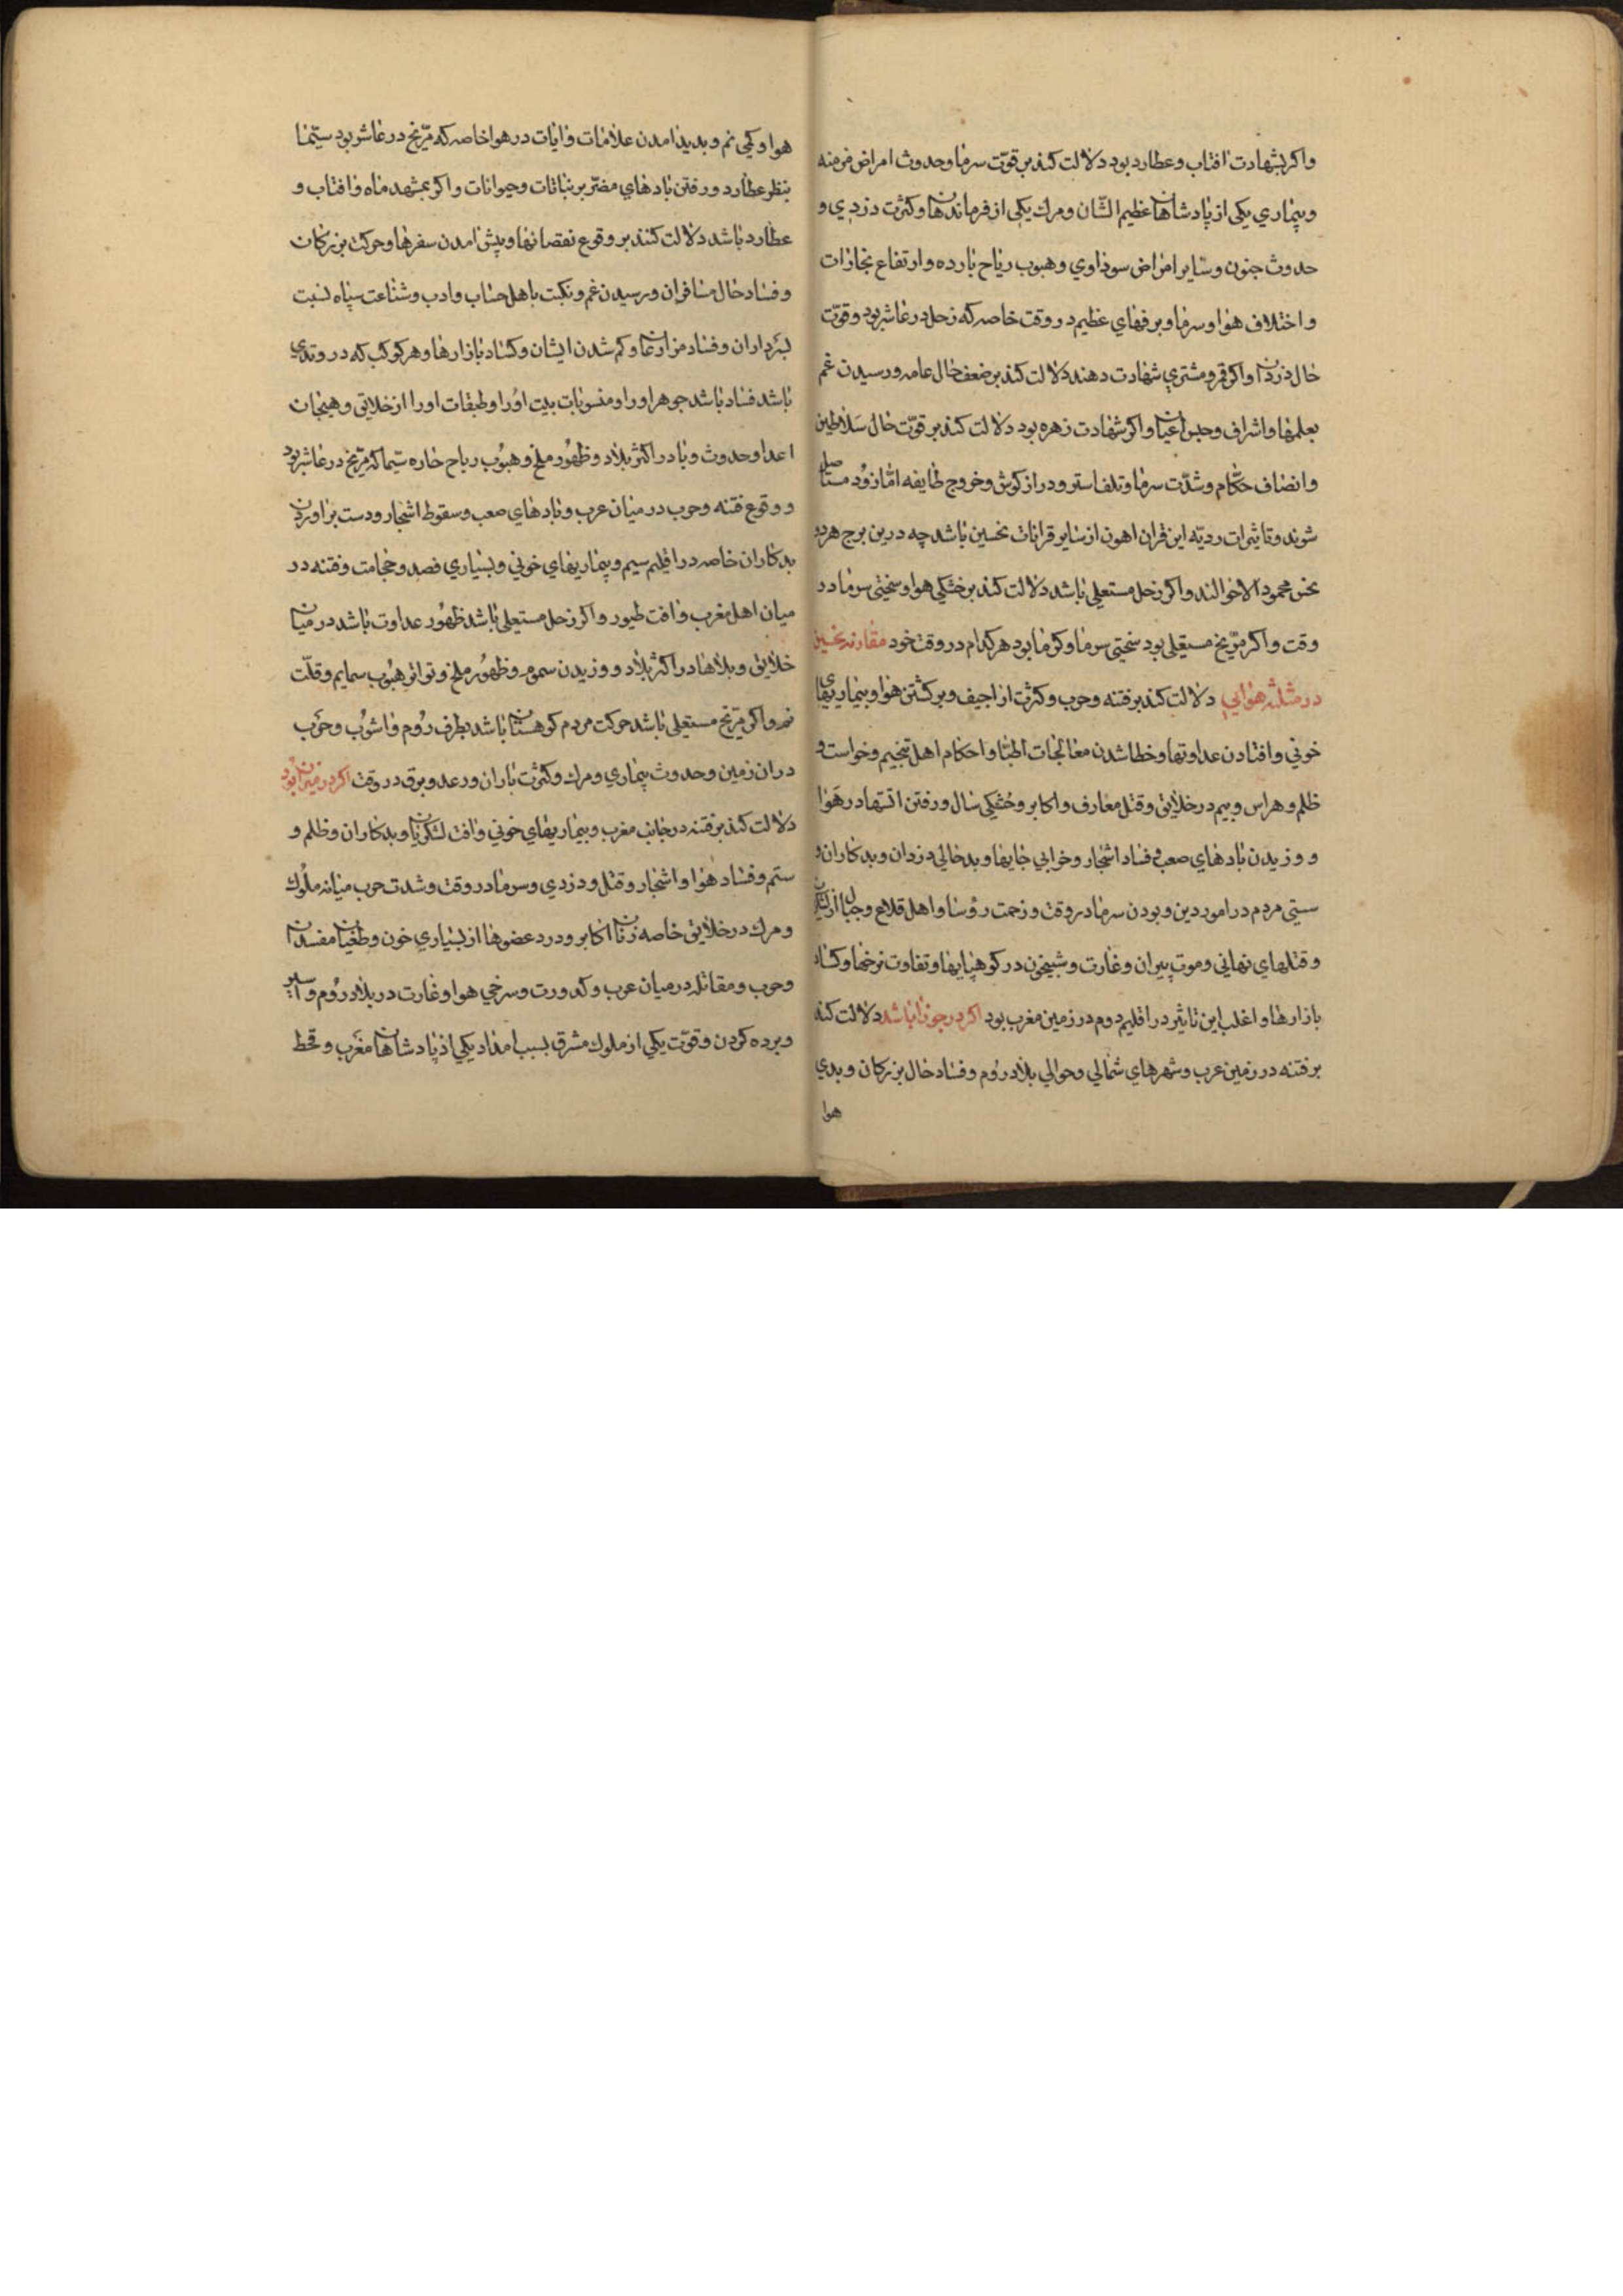 واکر بشهادت افتاب و عطارد بود دلالت کند بر قوّت سرما و حدوث امراض مزمنه
و بیماری یکی از پادشاهان عظیم الشّان و مرك یکی از فرماندهان و کثرت دزدی و
حدوث جنون و سایر امراض سوداوی و هبوب ریاح بارده و ارتفاع بخارات
و اختلاف هوا و سرما و برفهای عظیم در وقت خاصه که زحل در عاشر بود و قوّت
حال دزدان واکر قمر و مشتری شهادت دهند دلالت کند بر ضعف حال عامه و رسیدن غم
بعلمها و اشراف و حبس اعیان واکر شهادت زهره بود دلالت کند بر قوّت حال سلاطین
و انصاف حکّام و شدّت سرما و تلف استر و دراز کوش و خروج طایفه امّا زود مستاصل
شوند و تاثیرات ردیّه این قران اهون از سایر قرانات نحسین باشد چه درین برج هردو
نحس محمود الاحوالند واکر زحل مستعلی باشد دلالت کند بر خشکی هوا و سختی سرما در
وقت واکر مرّیخ مستعلی بود سختی سرما و کرما بود هرکدام در وقت خود مقارنه نحسین
در مثلثه هوایی دلالت کند بر فتنه و حرب و کثرت اراجیف و برکشتن هوا و بیماریهای
خونی و افتادن عداوتها و خطا شدن معالجات اطبّا و احکام اهل تنجیم و خواست و
ظلم و هراس و بیم در خلایق و قتل معارف و اکابر و خشکی سال و رفتن اتشها در هوا
و وزیدن بادهای صعب و فساد اشجار و خرابی جایها و بدحالی دزدان و بدکاران و
سستی مردم در امور دین و بودن سرما در وقت و زحمت رؤسا و اهل قلاع و جبال از لشکریان
و قتلهای نهانی و موت پیران و غارت و شبیخون در کوهپایها و تفاوت نرخها و کساد
بازارها و اغلب این تاثیر در اقلیم دوم در زمین مغرب بود اکر در جوزا باشد دلالت کند
بر فتنه در زمین عرب و شهرهای شمالی و حوالی بلاد روم و فساد حال بزرکان و بدی
هوا
هوا و کمی نم و بدید امدن علامات و ایات در هوا خاصه که مرّیخ در عاشر بود سیّما
بنظر عطارد و رفتن بادهای مضرّ بر نباتات و حیوانات واکر بمشهد ماه و افتاب و
عطارد باشد دلالت کنند بر وقوع نقصانها و پیش امدن سفرها و حرکت بزرکان
و فساد حال مسافران و رسیدن غم و نکبت باهل حساب و ادب و شناعت سپاه نسبت
بسرداران و فساد مزارعان و کم شدن ایشان و کساد بازارها و هر کوکب که در وتدی
باشد فساد باشد جوهر او را و منسوبات بیت او را و طبقات او را از خلایق و هیجان
اعدا و حدوث وبا در اکثر بلاد و ظهور ملخ و هبوب ریاح حاره سیّما که مرّیخ در عاشر بود
و وقوع فتنه و حرب در میان عرب و بادهای صعب و سقوط اشجار و دست براوردن
بدکاران خاصه در اقلیم سیم و بیماریهای خونی و بسیاری فصد و حجامت و فتنه در
میان اهل مغرب و افت طیور واکر زحل مستعلی باشد ظهور عداوت باشد در میان
خلایق و بلاها در اکثر بلاد و وزیدن سموم و ظهور ملخ و تواتر هبوب سمایم و قلّت
نم واکر مرّیخ مستعلی باشد حرکت مردم کوهستان باشد بطرف روم و اشوب و حرب
دران زمین و حدوث بیماری و مرك و کثرت باران و رعد و برق در وقت اکر در میزان بود
دلالت کند بر فتنه در جانب مغرب و بیماریهای خونی و افت لشکریان و بدکاران و ظلم و
ستم و فساد هوا و اشجار و قتل و دزدی و سرما در وقت و شدت حرب میانه ملوك
و مرك در خلایق خاصه زنان اکابر و درد عضوها از بسیاری خون و طغیان مفسدان
و حرب و مقاتله در میان عرب و کدورت و سرخی هوا و غارت در بلاد روم و اسیر
و برده کردن و قوّت یکی از ملوك مشرق بسبب امداد یکی از پادشاهان مغرب و قحط